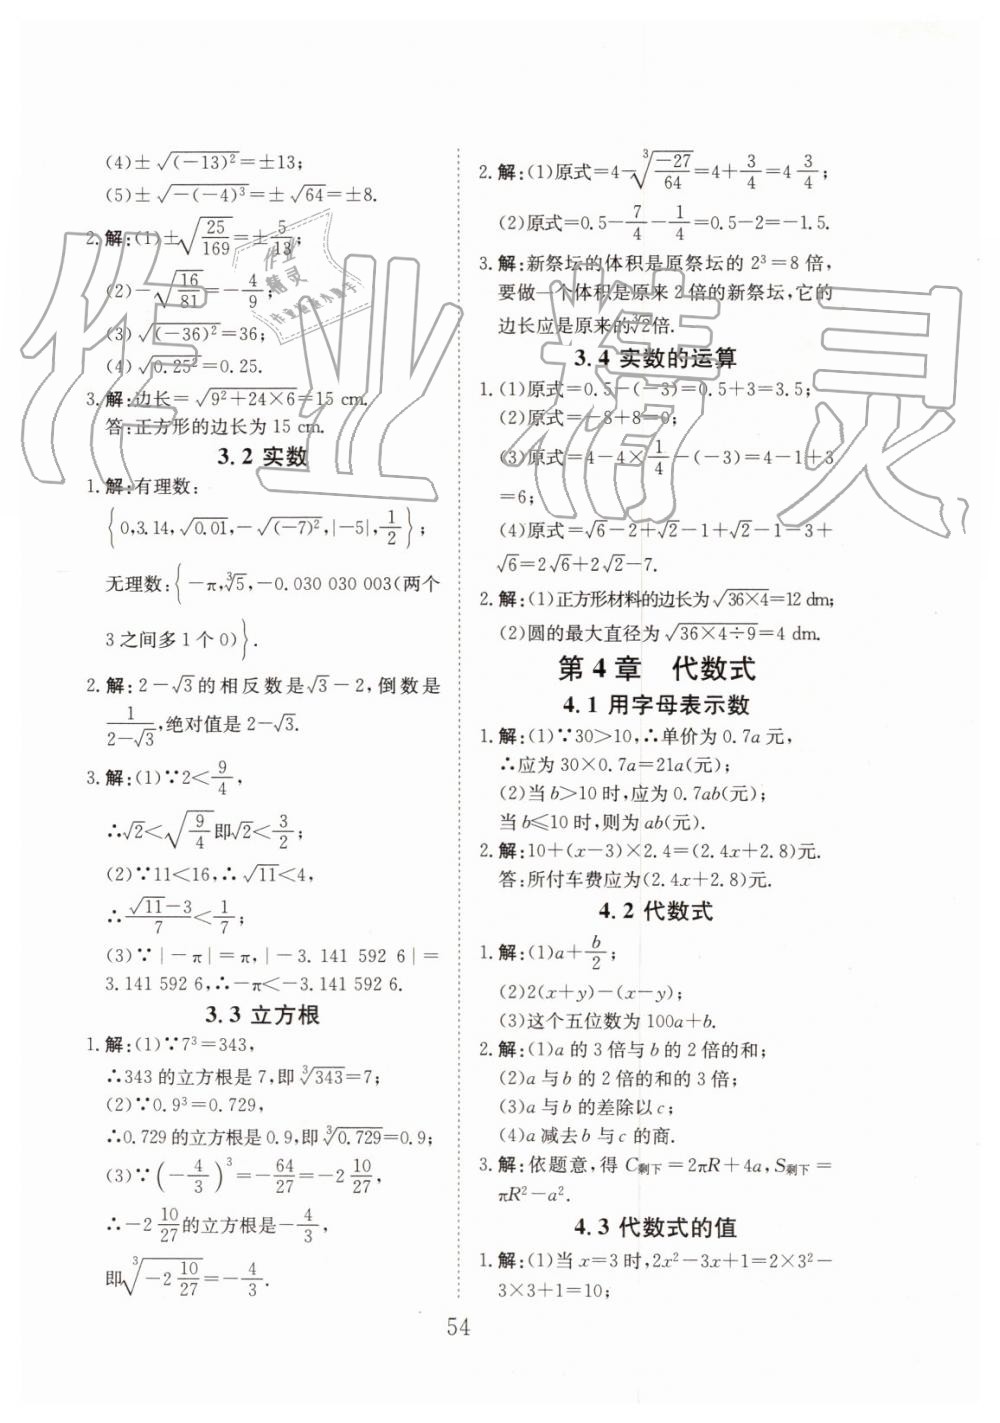 (4)±√(−13)²=±13;
(5)±√−(−4)³=±√64=±8.
2.解:(1)±√25/169=±5/13;
(2)−√16/81=−4/9;
(3)√(−36)²=36;
(4)√0.25²=0.25.
3.解:边长=√9²+24×6=15 cm.
答:正方形的边长为15 cm.
3.2 实数
1.解:有理数:
{0,3.14,√0.01,−√(−7)²,|−5|,1/2};
无理数:{−π,³√5,−0.030 030 003(两个
3之间多1个0)}.
2.解:2−√3的相反数是√3−2,倒数是
1/2−√3,绝对值是2−√3.
3.解:(1)∵2<9/4,
∴√2<√9/4即√2<3/2;
(2)∵11<16,∴√11<4,
∴√11−3/7<1/7;
(3)∵|−π|=π,|−3.141 592 6|=
3.141 592 6,∴−π<−3.141 592 6.
3.3 立方根
1.解:(1)∵7³=343,
∴343的立方根是7,即³√343=7;
(2)∵0.9³=0.729,
∴0.729的立方根是0.9,即³√0.729=0.9;
(3)∵(−4/3)³=−64/27=−2 10/27
∴−2 10/27的立方根是−4/3,
即³√−2 10/27=−4/3.
2.解:(1)原式=4−³√−27/64=4+3/4=4 3/4;
(2)原式=0.5−7/4−1/4=0.5−2=−1.5.
3.解:新祭坛的体积是原祭坛的2³=8倍,
要做一个体积是原来2倍的新祭坛,它的
边长应是原来的³√2倍.
3.4 实数的运算
1.(1)原式=0.5−(−3)=0.5+3=3.5;
(2)原式=−8+8=0;
(3)原式=4−4×1/4−(−3)=4−1+3
=6;
(4)原式=√6−2+√2−1+√2−1=3+
√6=2√6+2√2−7.
2.解:(1)正方形材料的边长为√36×4=12 dm;
(2)圆的最大直径为√36×4÷9=4 dm.
第4章 代数式
4.1 用字母表示数
1.解:(1)∵30>10,∴单价为0.7a元,
∴应为30×0.7a=21a(元);
(2)当b>10时,应为0.7ab(元);
当b≤10时,则为ab(元).
2.解:10+(x−3)×2.4=(2.4x+2.8)元.
答:所付车费应为(2.4x+2.8)元.
4.2 代数式
1.解:(1)a+b/2;
(2)2(x+y)−(x−y);
(3)这个五位数为100a+b.
2.解:(1)a的3倍与b的2倍的和;
(2)a与b的2倍的和的3倍;
(3)a与b的差除以c;
(4)a减去b与c的商.
3.解:依题意,得C剩下=2πR+4a,S剩下=
πR²−a².
4.3 代数式的值
1.解:(1)当x=3时,2x²−3x+1=2×3²−
3×3+1=10;
54
作业精灵
作业
精灵